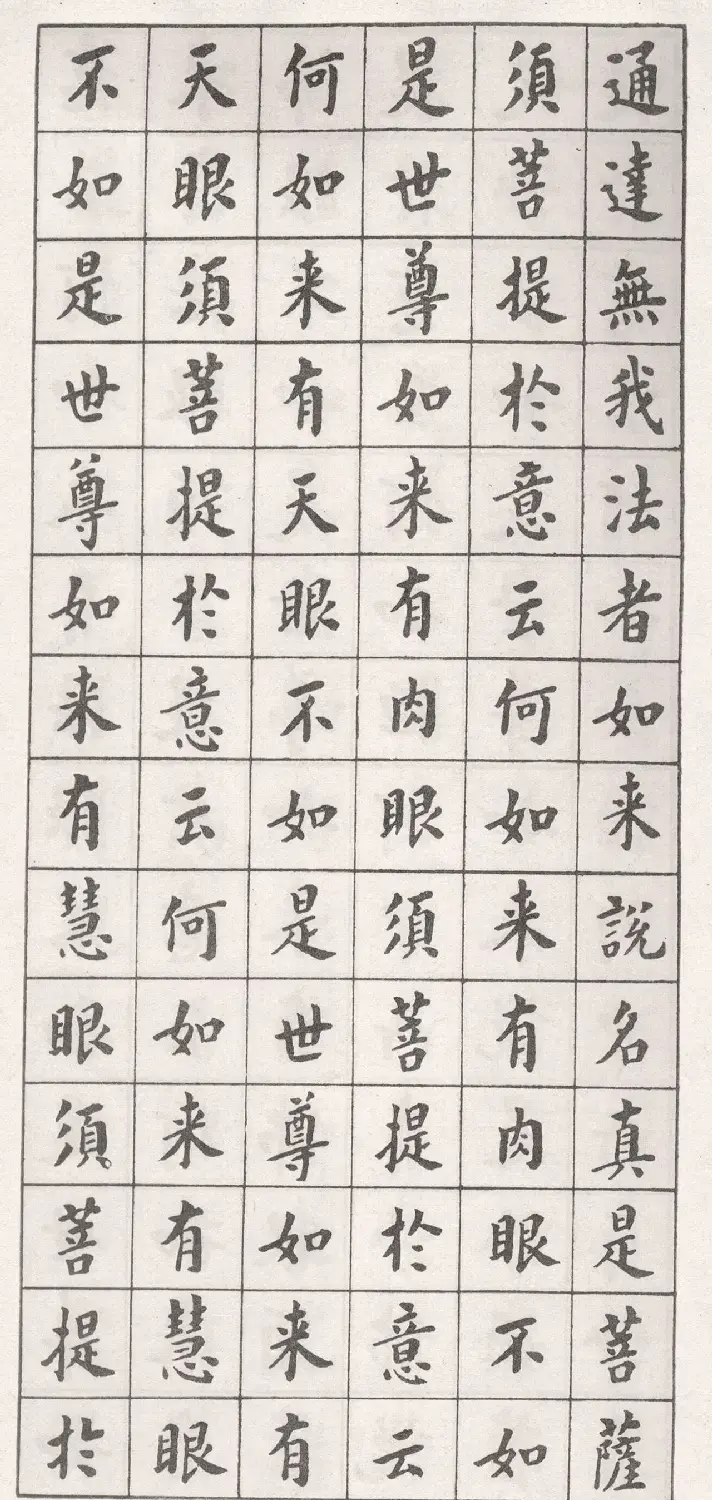 通達無我法者如来說名真是菩薩
須菩提於意云何如来有肉眼不如
是世尊如来有肉眼須菩提於意云
何如来有天眼不如是世尊如来有
天眼須菩提於意云何如来有慧眼
不如是世尊如来有慧眼須菩提於